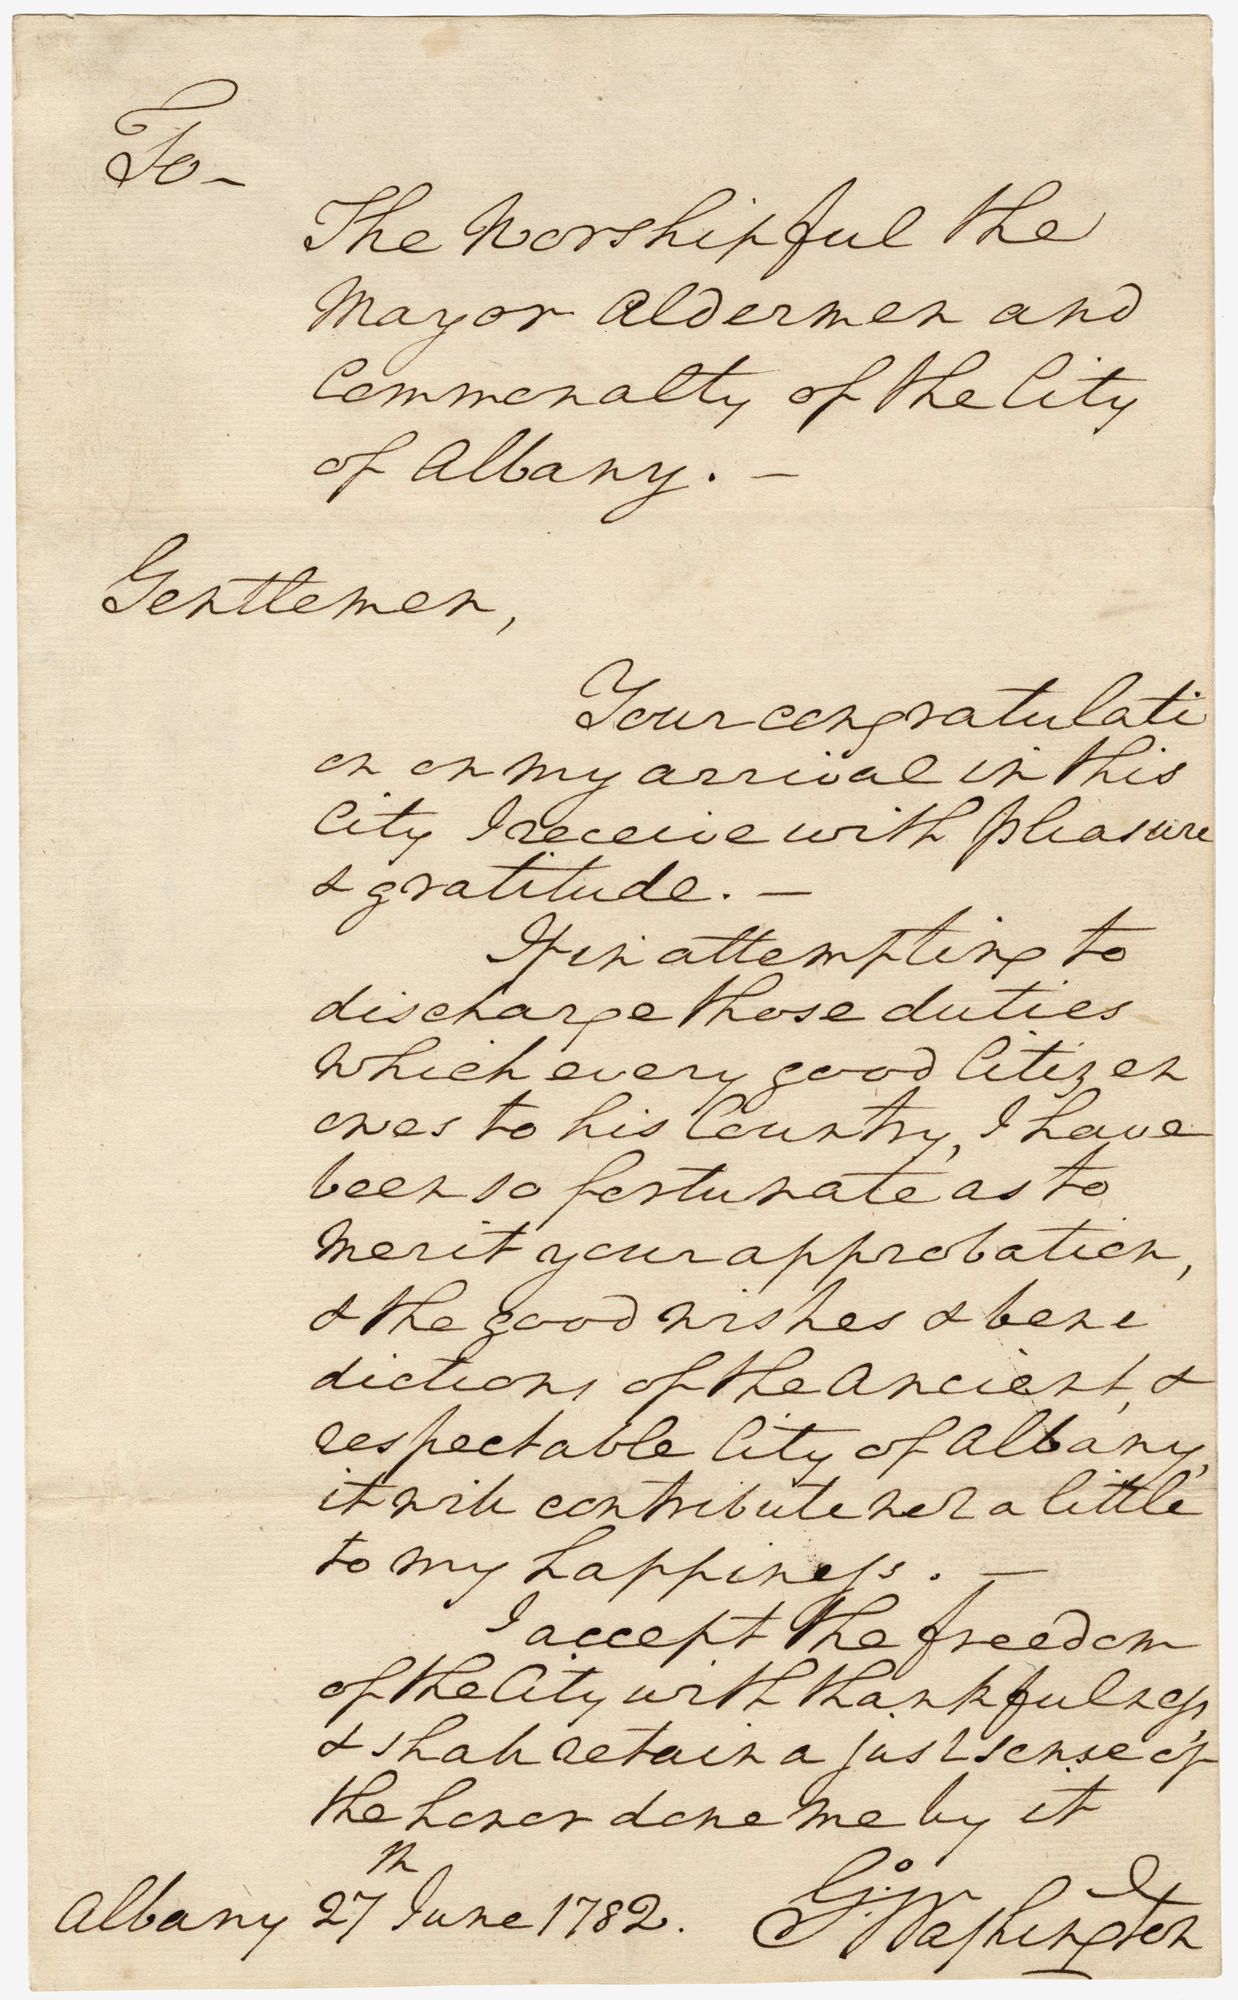 To-
The Worshipful the
Mayor Aldermen and
Commonalty of the City
of Albany. —
Gentlemen,
Your congratulati
on on my arrival in this
City I receive with pleasure
& gratitude. —
If in attempting to
discharge those duties
which every good Citizen
owes to his Country, I have
been so fortunate as to
merit your approbation,
& the good wishes & bene
dictions of the Ancient, &
respectable City of Albany,
it will contribute not a little
to my happiness. —
I accept the freedom
of the City with thankfulness
& shall retain a just sense of
the honor done me by it
Albany 27th June 1782.
Go: Washington